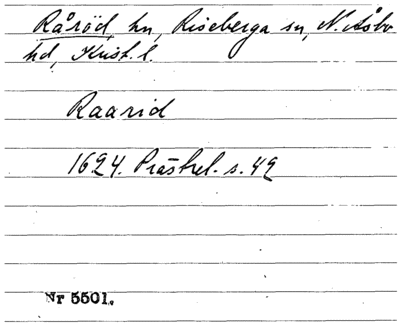 Råröd, hn, Riseberga sn, N. Åsbo
hd, Krist. l.
Raarid
1624. Prästrel. s. 49
Nr 5501.